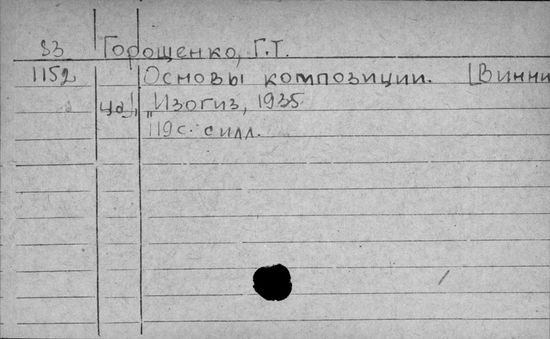 83 Горощенко, Г.Т.
1152 Основы композиции. [Винни
ца], "Изогиз, 1935.
119 с. с илл.